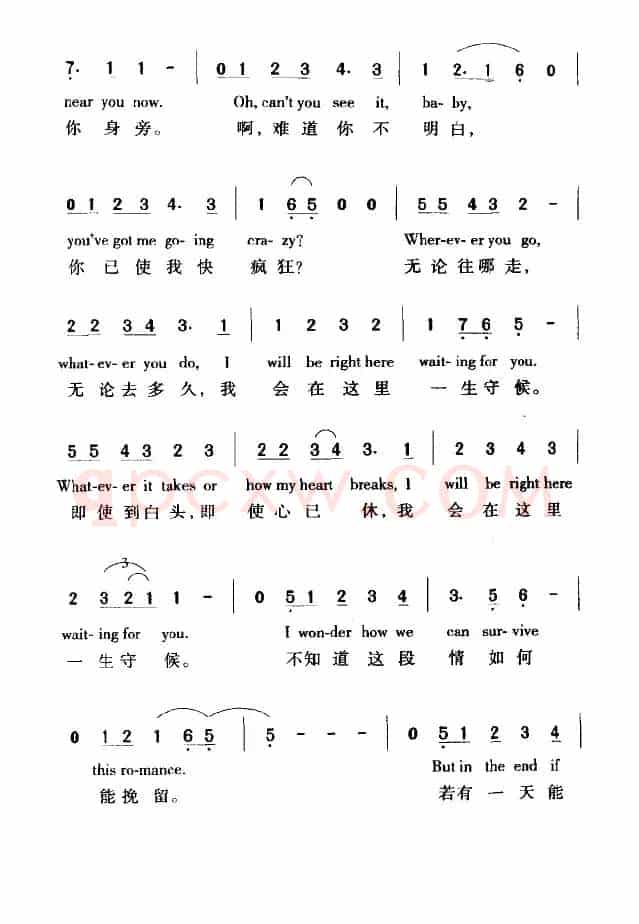 7· 1 1 - | 0 1 2 3 4· 3 | 1 2· 1 6 0 |
near you now. Oh, can't you see it, ba- by,
你 身 旁。 啊，难 道 你 不 明 白，
0 1 2 3 4· 3 | 1 6 5 0 0 | 5 5 4 3 2 - |
you've got me go- ing cra- zy? Wher-ev- er you go,
你 已 使 我 快 疯 狂？ 无 论 往 哪 走，
2 2 3 4 3· 1 | 1 2 3 2 | 1 7 6 5 - |
what-ev- er you do, I will be right here wait- ing for you.
无 论 去 多 久，我 会 在 这 里 一 生 守 候。
5 5 4 3 2 3 | 2 2 3 4 3· 1 | 2 3 4 3 |
What-ev- er it takes or how my heart breaks, I will be right here
即 使 到 白 头，即 使 心 已 休，我 会 在 这 里
qpcxw.COM
3
2 3 2 1 1 - | 0 5 1 2 3 4 | 3· 5 6 - |
wait- ing for you. I won-der how we can sur- vive
一 生 守 候。 不 知 道 这 段 情 如 何
0 1 2 1 6 5 | 5 - - - | 0 5 1 2 3 4 |
this ro-mance. But in the end if
能 挽 留。 若 有 一 天 能